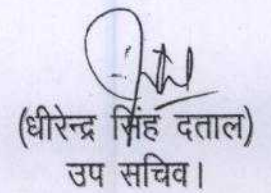 (धीरेन्द्र सिंह दताल)
उप सचिव।